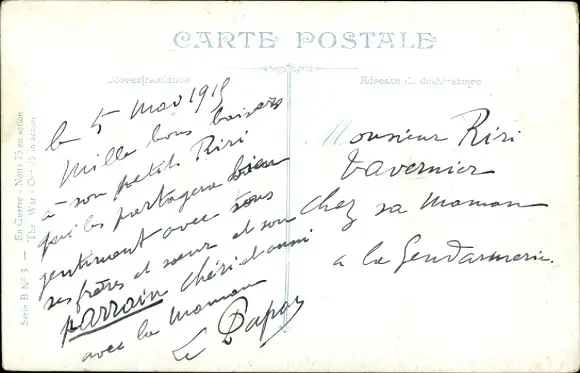 CARTE POSTALE
Correspondance
Adresse du destinataire
Série B Nº 3 — En Guerre - Notre 75 en action
The War - Our 75 in action
le 5 Mai 1915
Mille bons baisers
à son petit Riri
qui les partagera bien
gentiment avec tous
ses frères et sœur et son
parrain chéri et aussi
avec la maman
Le Papa
Monsieur Riri
Tavernier
Chez sa Maman
a la Gendarmerie.